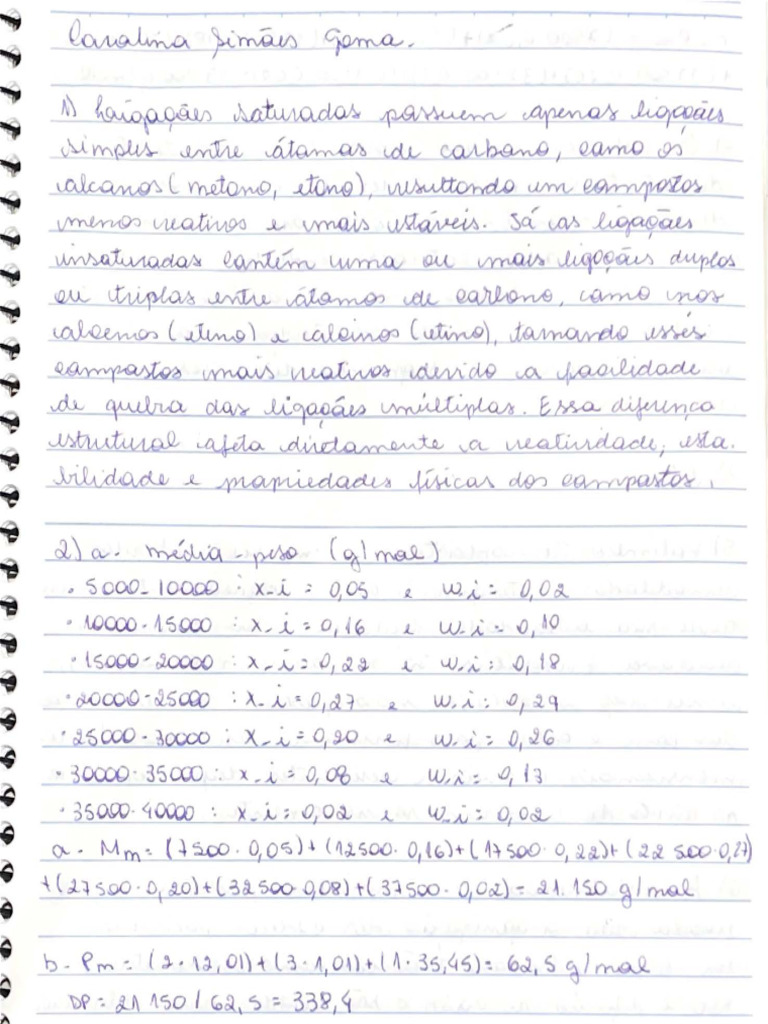 Carolina Simões Gama.
1) Laigações saturadas possuem apenas ligações
simples entre átomos de carbono, como os
alcanos (metano, etano), resultando um compostos
menos reativos e mais estáveis. Já as ligações
insaturadas contém uma ou mais ligações duplas
ou triplas entre átomos de carbono, como nos
alcenos (eteno) e alcinos (etino), tornando esses
compostos mais reativos devido a facilidade
de quebra das ligações múltiplas. Essa diferença
estrutural afeta diretamente a reatividade, esta.
bilidade e propriedades físicas dos compostos.
2) a- média-peso (g/mol)
· 5000-10000 : x-i = 0,05 e w-i = 0,02
· 10000-15000 : x-i = 0,16 e w-i = 0,10
· 15000-20000 : x-i = 0,22 e w-i = 0,18
· 20000-25000 : x-i = 0,27 e w-i = 0,29
· 25000-30000 : x-i = 0,20 e w-i = 0,26
· 30000-35000 : x-i = 0,08 e w-i = 0,13
· 35000-40000 : x-i = 0,02 e w-i = 0,02
a- Mm = (7500·0,05)+(12500·0,16)+(17500·0,22)+(22500·0,27)
+(27500·0,20)+(32500·0,08)+(37500·0,02) = 21.150 g/mol
b- Pm = (2·12,01)+(3·1,01)+(1·35,45) = 62,5 g/mol
DP = 21150/62,5 = 338,4